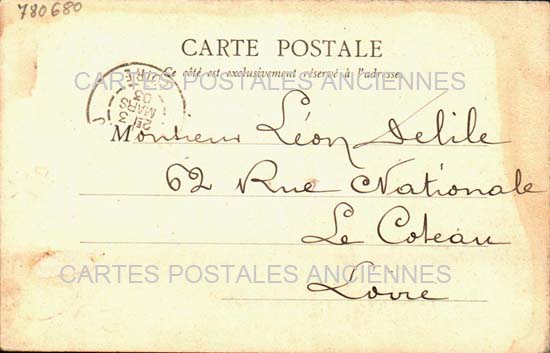 780680
CARTE POSTALE
Ce côté est exclusivement réservé à l'adresse
CARTES POSTALES ANCIENNES
MARS
03
Monsieur Léon Delile
62 Rue Nationale
Le Coteau
CARTES POSTALES ANCIENNES
Loire